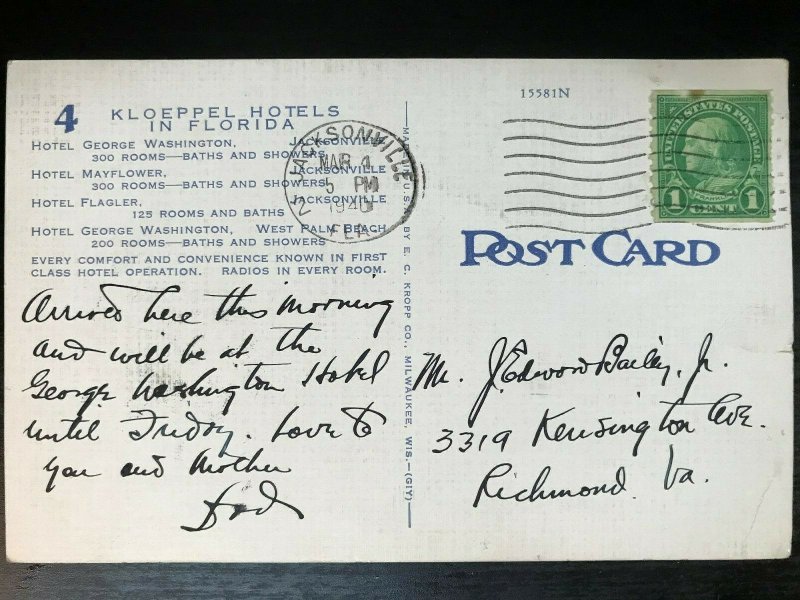 4 KLOEPPEL HOTELS
IN FLORIDA
HOTEL GEORGE WASHINGTON, JACKSONVILLE
300 ROOMS—BATHS AND SHOWERS
HOTEL MAYFLOWER, JACKSONVILLE
300 ROOMS—BATHS AND SHOWERS
HOTEL FLAGLER, JACKSONVILLE
125 ROOMS AND BATHS
HOTEL GEORGE WASHINGTON, WEST PALM BEACH
200 ROOMS—BATHS AND SHOWERS
EVERY COMFORT AND CONVENIENCE KNOWN IN FIRST
CLASS HOTEL OPERATION. RADIOS IN EVERY ROOM.
Arrived here this morning
and will be at the
George Washington Hotel
until Friday. Love to
you and Mother
Dad
BY E. C. KROPP CO., MILWAUKEE, WIS.—(GIY)
JACKSONVILLE
MAR 4
5 PM
1940
FLA.
15581N
UNITED STATES POSTAGE
FRANKLIN
1 CENT 1
POST CARD
Mr. J. Edward Bailey, Jr.
3319 Kensington Ave.
Richmond Va.